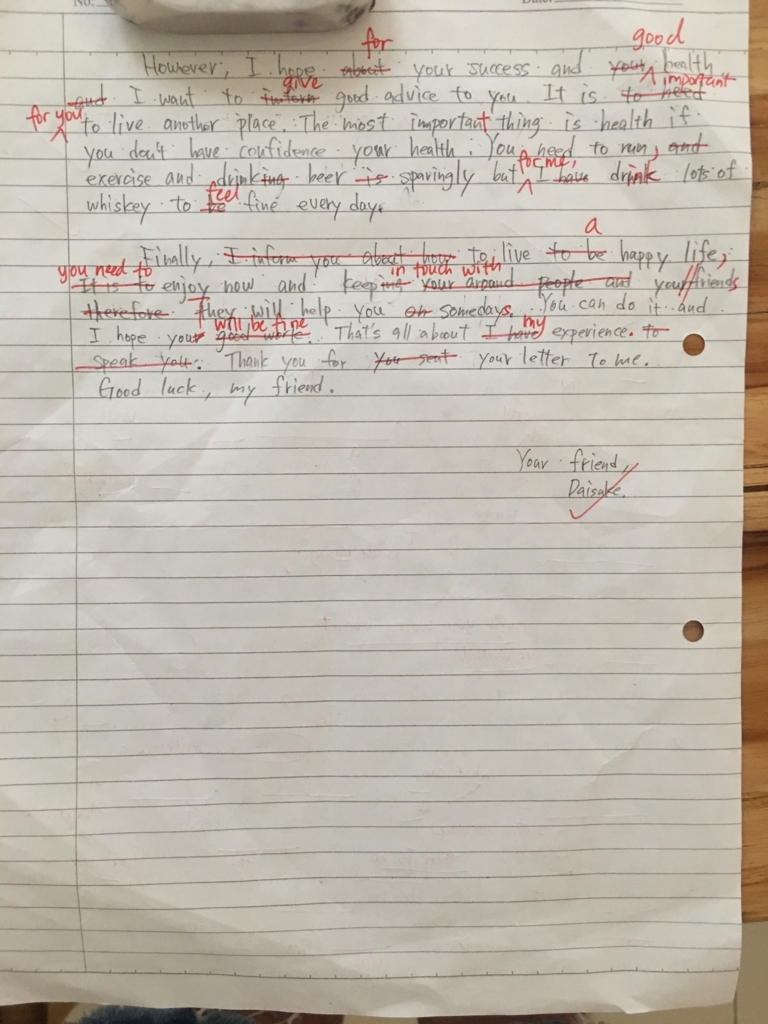 No.
for good
However, I hope about your success and your health
give important
and I want to inform good advice to you. It is to need
for you
to live another place. The most important thing is health if
you don't have confidence your health. You need to run, and
for me,
exercise and drinking beer is sparingly but I have drink lots of
feel
whiskey to be fine every day.
a
Finally, I inform you about how to live to be happy life,
you need to in touch with
It is to enjoy now and keeping your around people and your friends
therefore. They will help you on somedays. You can do it and
will be fine my
I hope your good works. That's all about I have experience. to
speak you. Thank you for You sent your letter to me.
Good luck, my friend.
Your friend,
Daisuke.